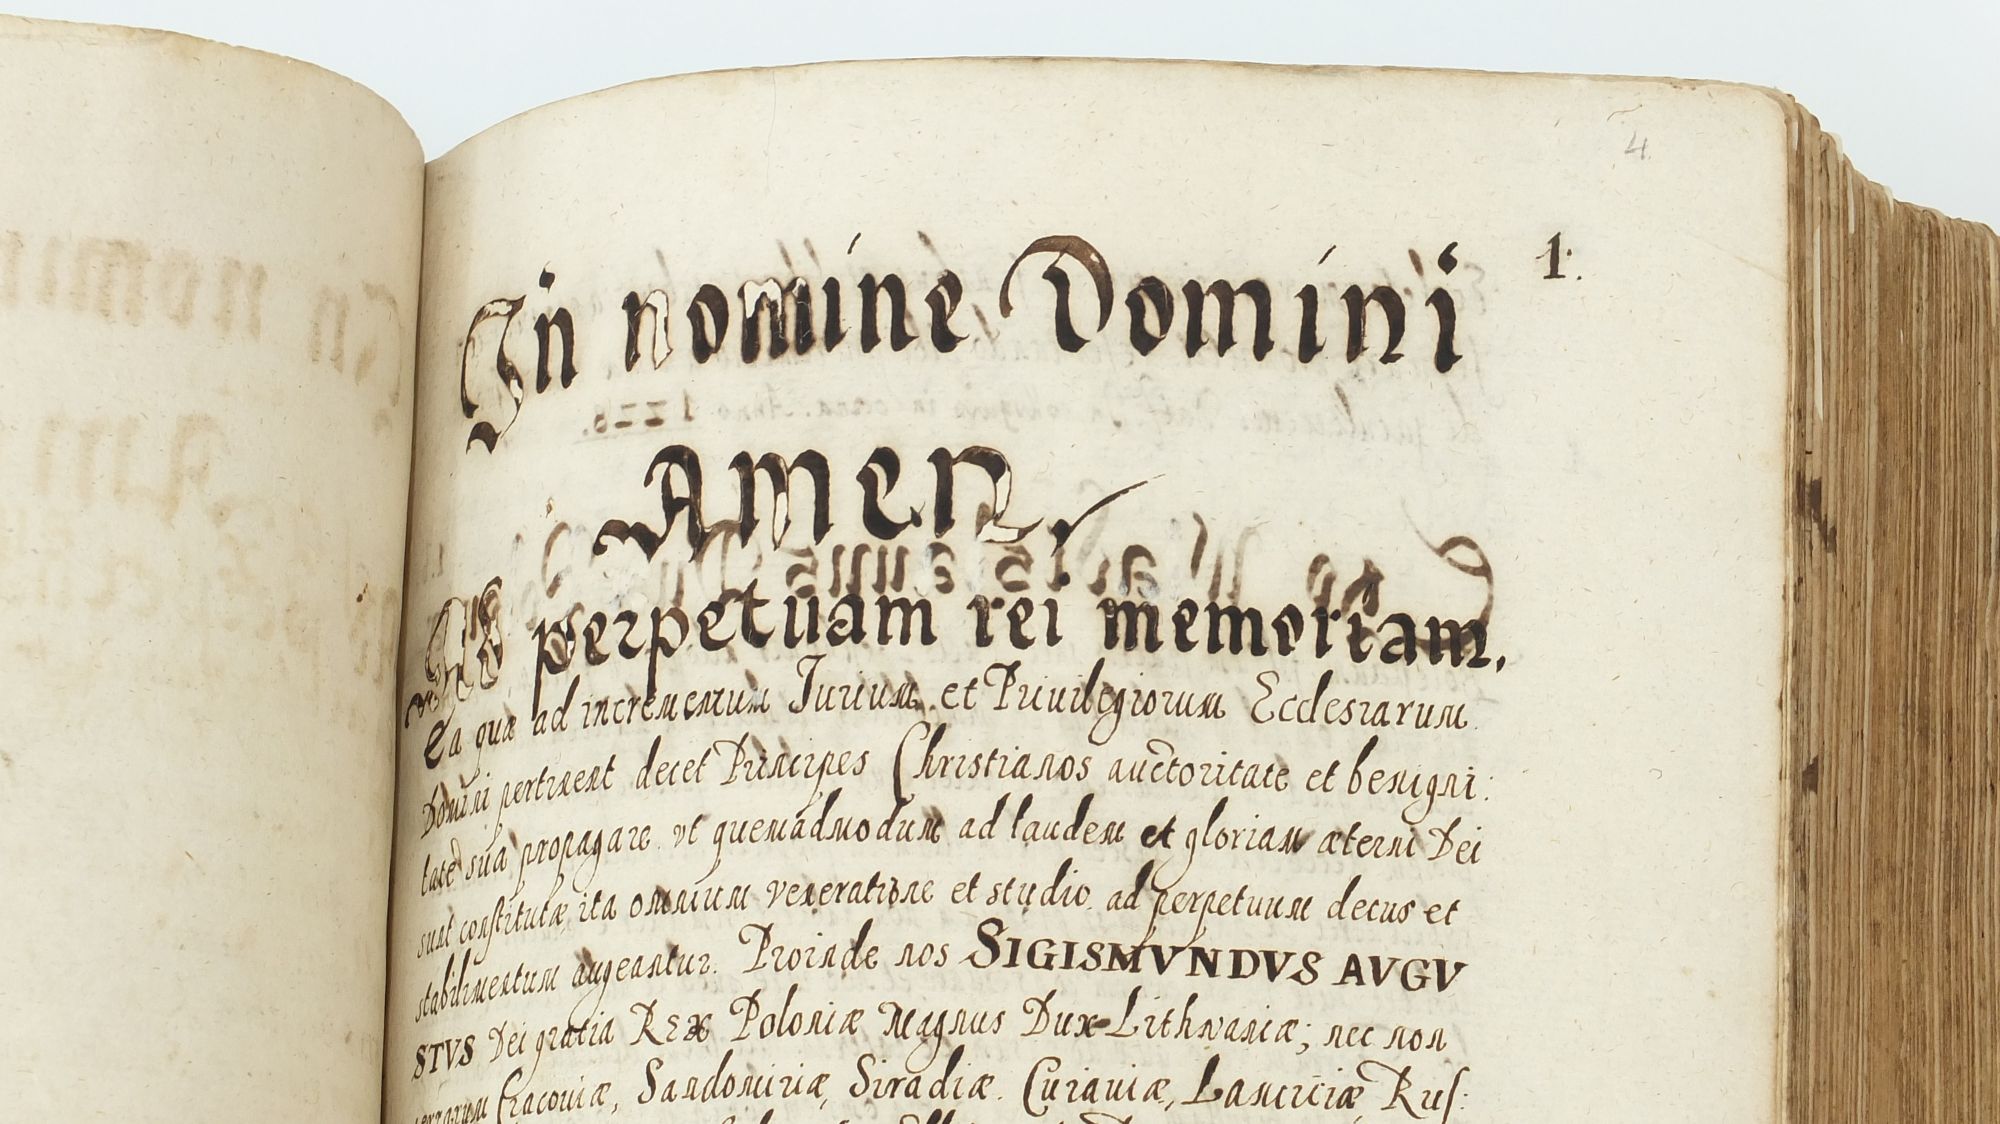 4
1.
In nomine Domini
Amen,
Ad perpetuam rei memoriam.
Ea quæ ad incrementum Iurium et Priuilegiorum Ecclesiarum
Domini pertinent decet Principes Christianos auctoritate et benigni:
tate sua propagare vt quemadmodum ad laudem et gloriam æterni Dei
sunt constitutæ ita omnium veneratione et studio ad perpetuum decus et
stabilimentum augeantur. Proinde nos SIGISMVNDVS AVGV
STVS Dei gratia REX Poloniæ Magnus Dux Lithvaniæ; nec non
terrarum Cracouiæ, Sandomiriæ, Siradiæ, Cuiauiæ, Lanciciæ, Rus: